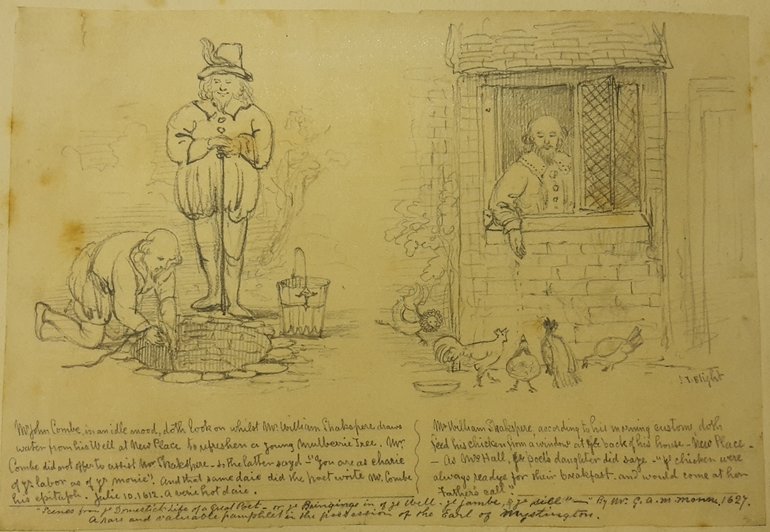 Mr John Combe, in an idle mood, doth look on whilst Mr. William Shakspere draws
water from his Well at New Place to refreshen a young Mulberie Tree. Mr.
Combe did not offer to assist Mr Shakspere - so the latter sayd - "You are as charie
of yr labor as of yr monie". And that same daie did the Poet wrote Mr Combe
his epitaph. Julie 10, 1612. A verie hot daie.
J. T. Blight
Mr William Shakspere, according to his morning custom, doth
feed his chicken from a window at ye back of his house - New Place -
- As Mrs Hall, ye poets daughter did saye - "ye chicken were
always readye for their breakfast and would come at her
Father's call.
"Scenes from ye Domestick Life of a Great Poet - or ye Bringings in of ye Well - ye jambe, & ye sill" - By Mr. G. A. M. 1627.
A rare and valuable pamphlet in the possession of the Earl of